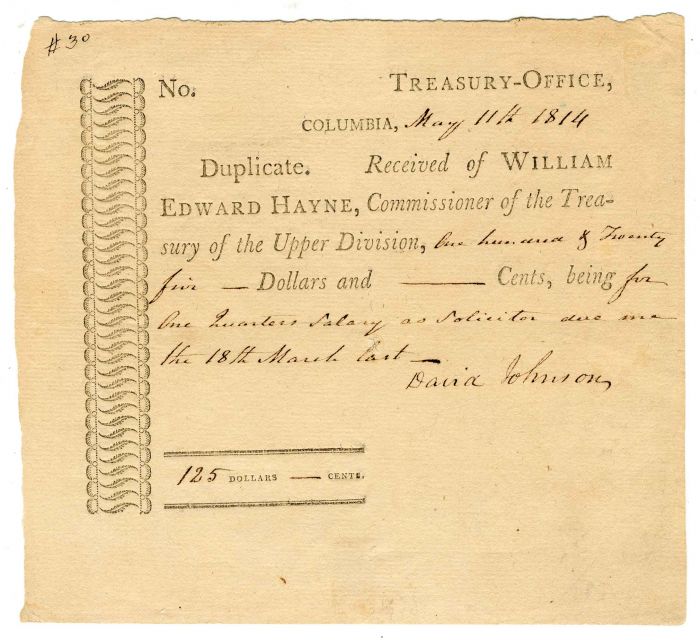 # 30
No. TREASURY-OFFICE,
COLUMBIA, May 11th 1814
Duplicate. Received of WILLIAM
EDWARD HAYNE, Commissioner of the Trea-
sury of the Upper Division, One hundred & Twenty
five — Dollars and —— Cents, being for
One Quarters Salary as Solicitor due me
the 18th March last —
David Johnson
125 DOLLARS — CENTS.